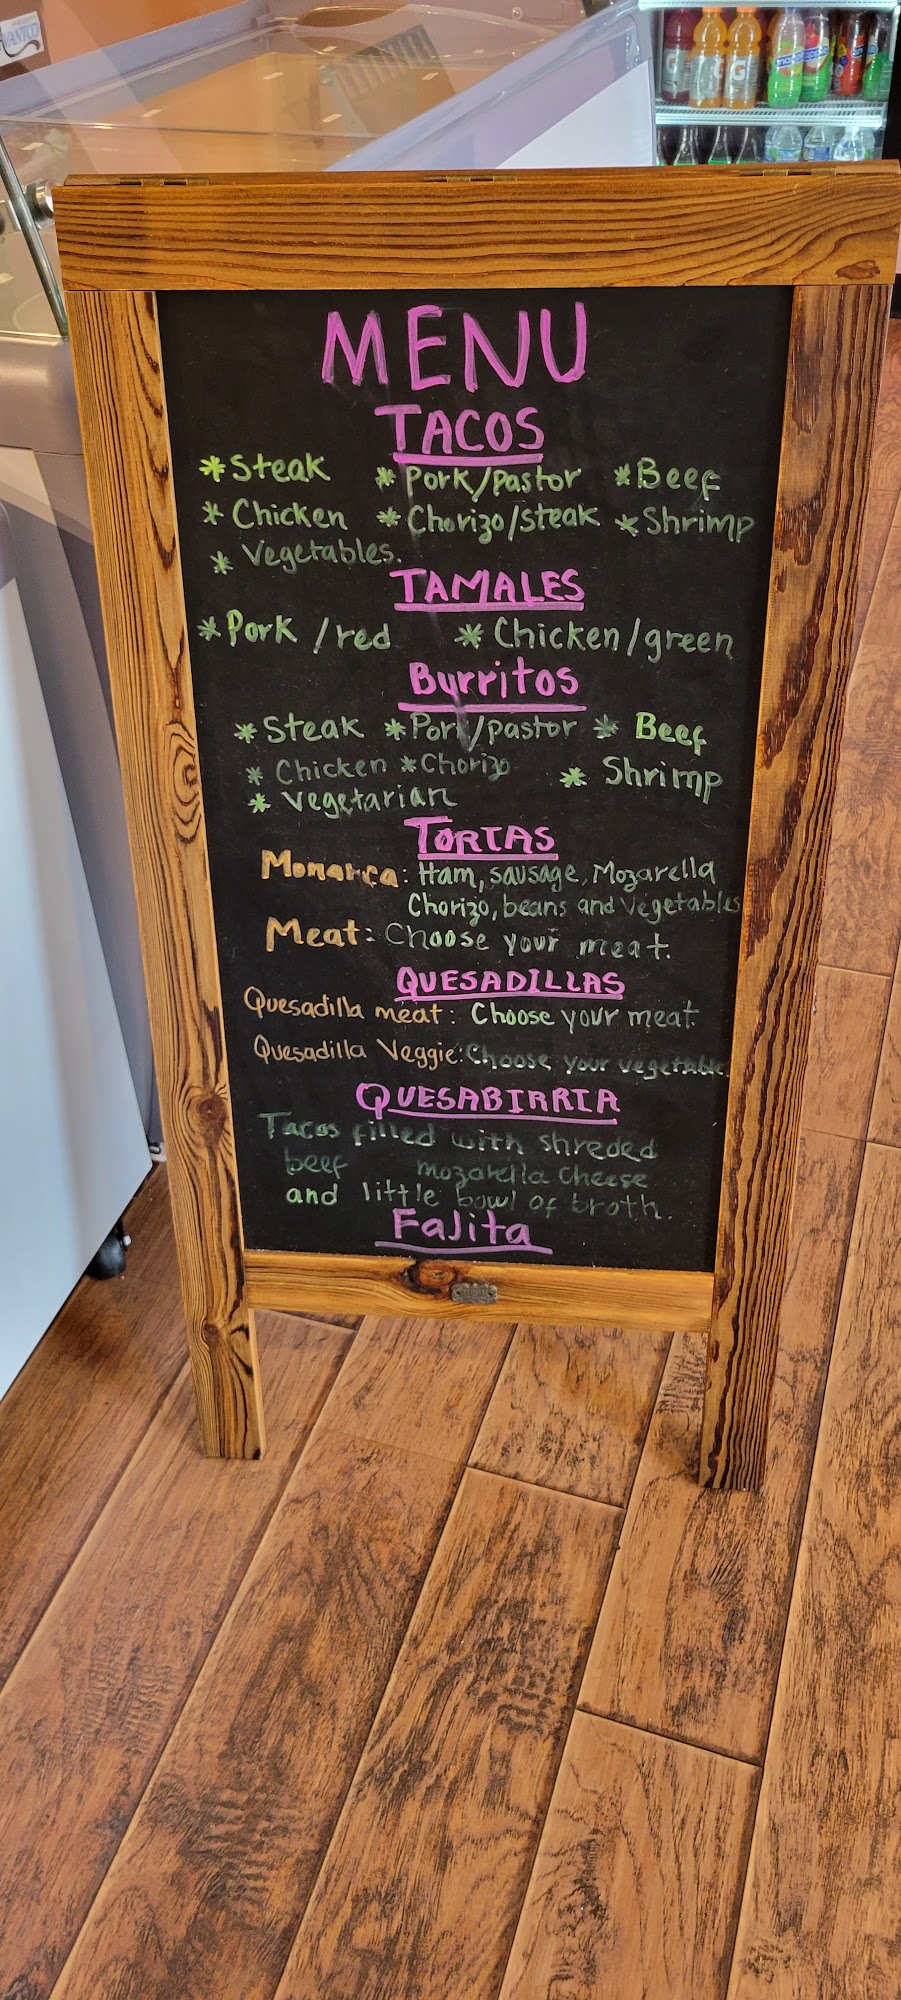 MENU
TACOS
* Steak * Pork/Pastor * Beef
* Chicken * Chorizo/steak * Shrimp
* Vegetables.
TAMALES
* Pork /red * Chicken/green
Burritos
* Steak * Pork/pastor * Beef
* Chicken * Chorizo * Shrimp
* Vegetarian
TORTAS
Monarca: Ham, sausage, Mozarella
Chorizo, beans and vegetables
Meat: Choose your meat.
QUESADILLAS
Quesadilla meat: Choose your meat.
Quesadilla Veggie: Choose your vegetable
QUESABIRRIA
Tacos filled with shreded
beef mozarella cheese
and little bowl of broth.
FaJita